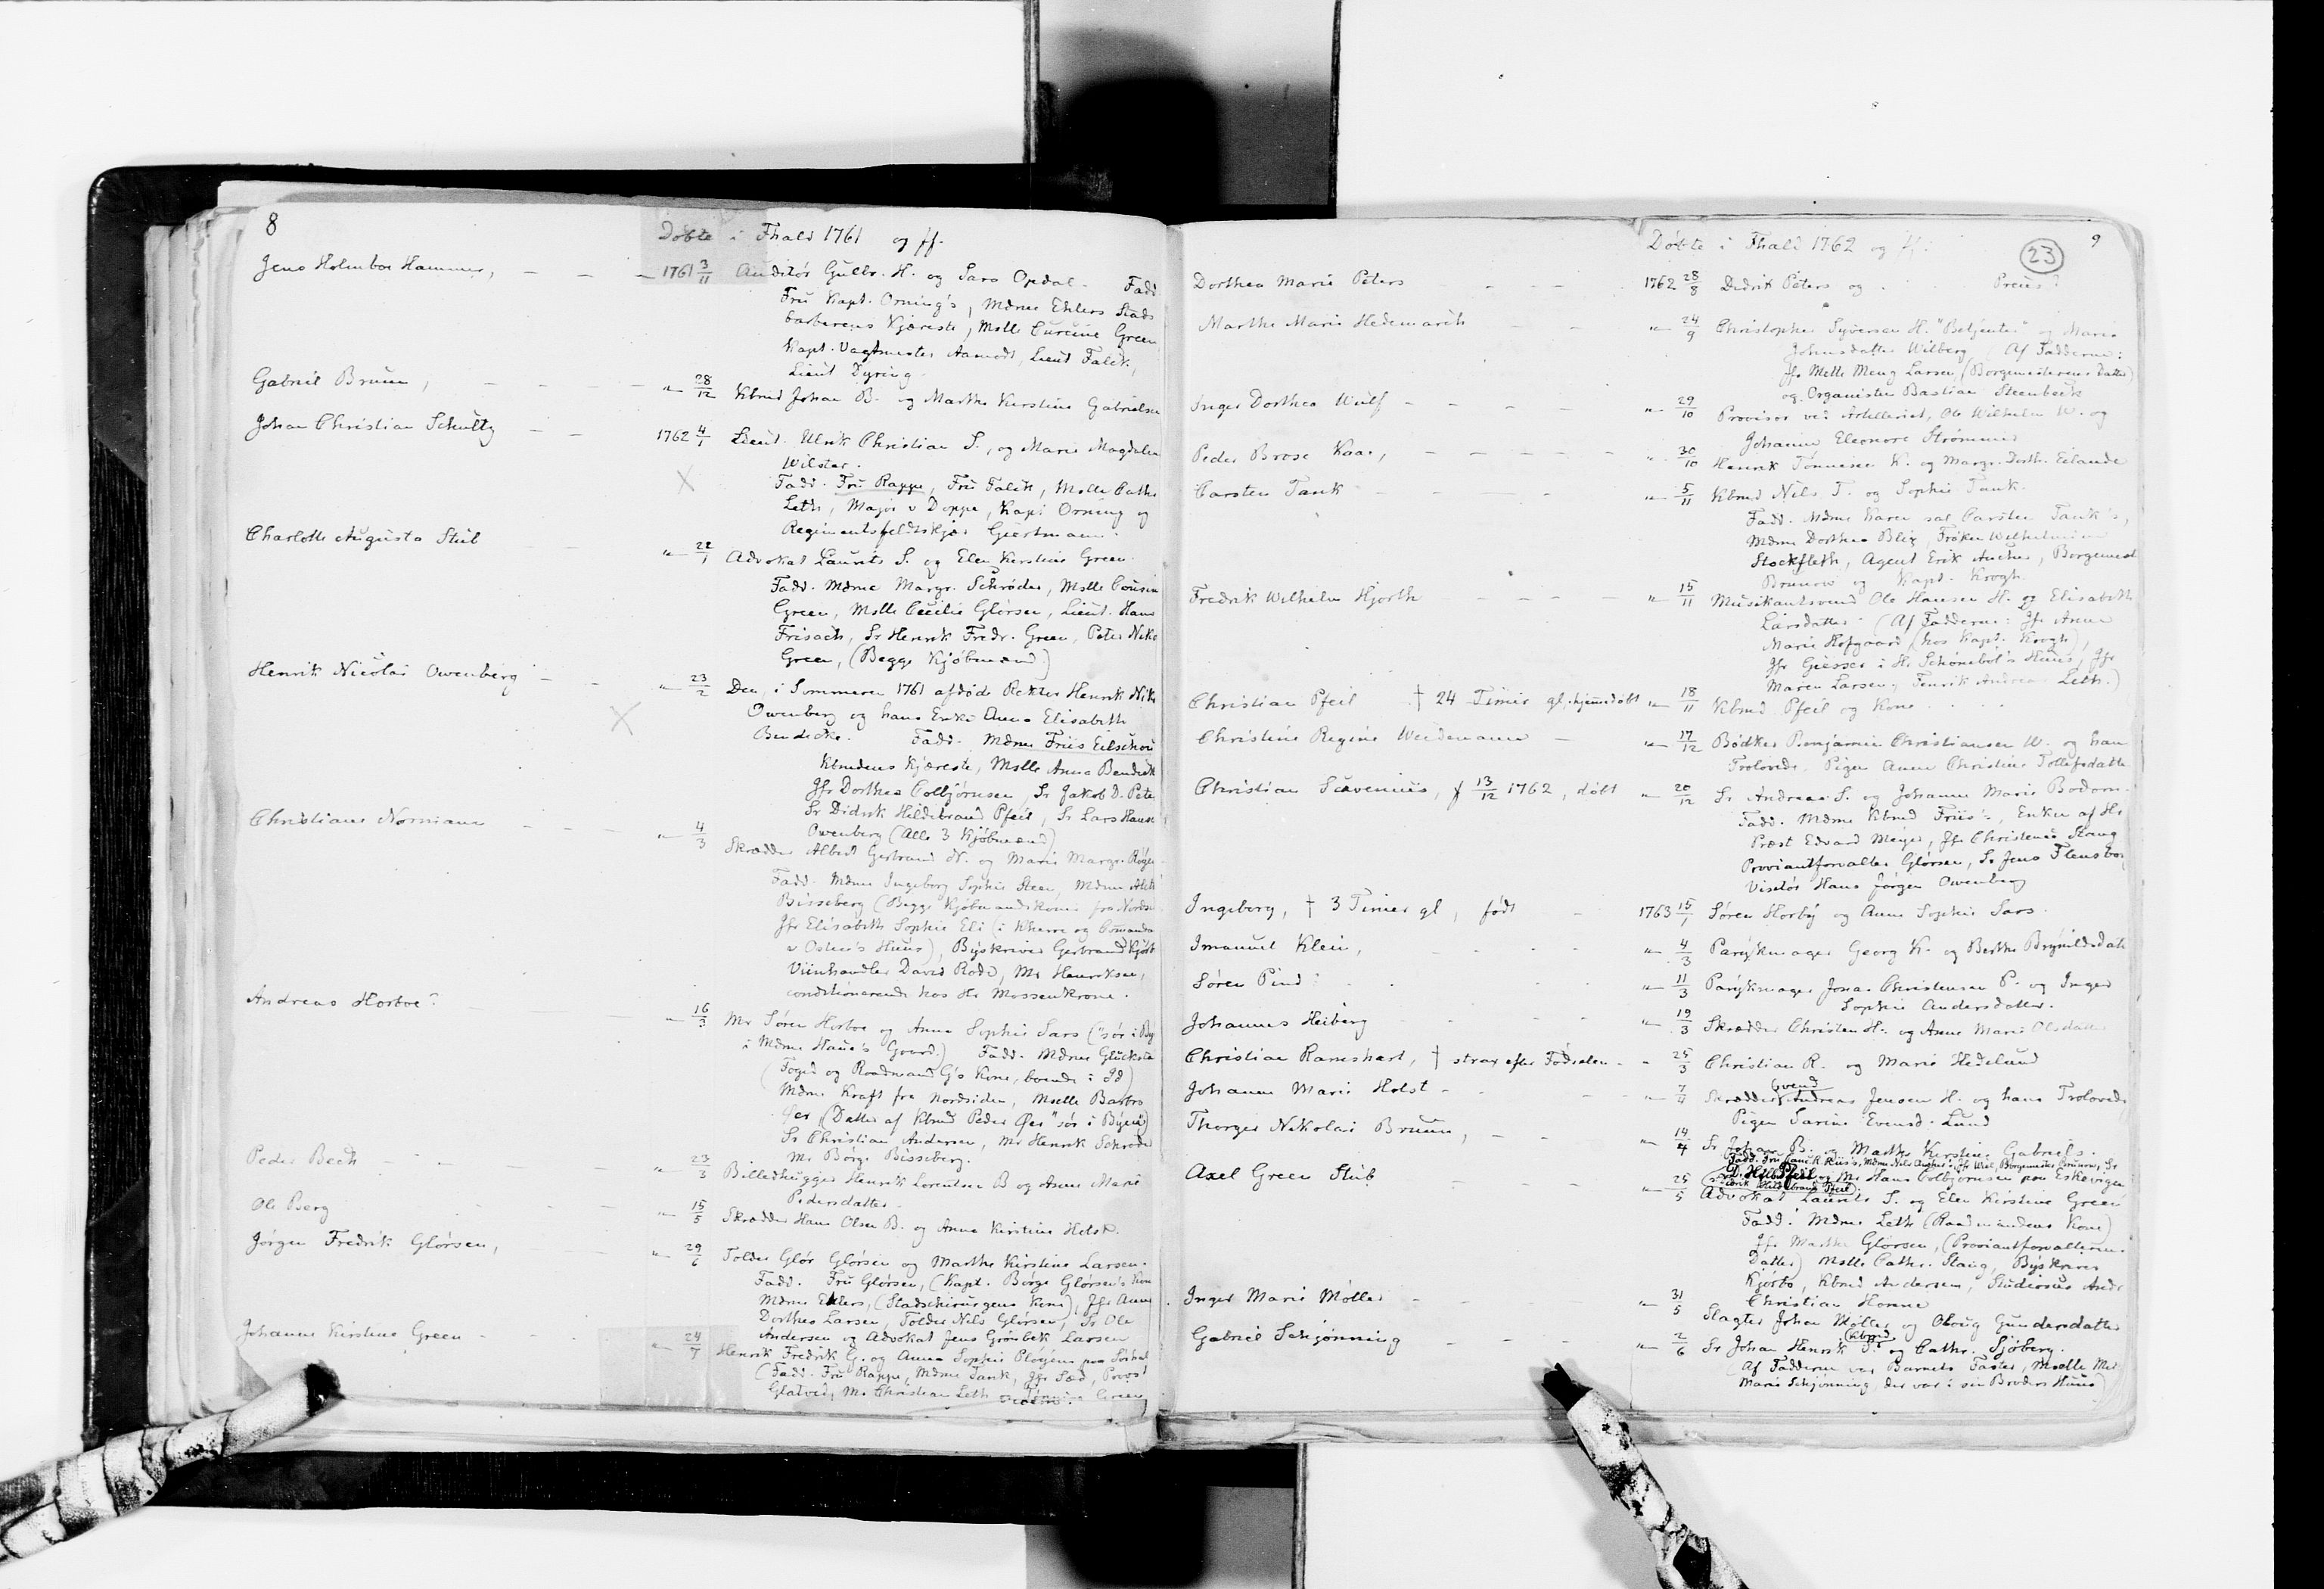 8
Døbte i Fhald 1761 og ff.
Jens Holmboe Hammer, — — — 1761 3/11 Auditør Gulbr. H. og Sara Opdal. Fadd.
Fru Kapt. Orning's, Mdme Ehlers Stads
barberens Kjæreste, Mslle Green
Kapt. Vagtmester Aamodt, Lieut Falck,
Lieut Dyring.
Gabriel Bruun, — — — „— 28/12 Kbmd Johan B. og Marthe Kirstine Gabrielsen
Johan Christian Schultz — — 1762 4/1 Lieut. Ulrik Christian S., og Marie Magdalen
Wilster.
Fadd. Fru Rappe, Fru Falck, Mslle Cathr
Leth, Major v Deppe, Kapt Orning og
Regimentsfeldtskjær Giertmann.
Charlotte Augusta Stub „— 22/1 Advokat Laurits S. og Elen Kirstine Green.
Fadd. Mdme Margr. Schrøder, Mslle
Green, Mslle Cecilie Glørsen, Lieut. Hans
Frisach, Sr Henrik Fredr. Green, Peter Nik.
Green, (Begge Kjøbmænd)
Henrik Nicolai Owenberg — — „— 23/2 Den, i Sommeren 1761 afdøde Rektor Henrik Nik.
Owenberg og hans Enke Anna Elisabeth
Bendeke. Fadd. Mdme Friis Eilschou
Kbmdens Kjæreste, Mslle Anna Bendeke
Jfr Dorthea Colbjørnsen, Sr Jakob D. Peter
Sr Didrik Hildebrand Pfeil, Sr Lars Hansen
Owenberg (Alle 3 Kjøbmænd)
Christiane Normann — — — „— 4/3 Skrædder Albert Gertrand N. og Marie Margr. Røger
Fadd. Mdme Ingeborg Sophie Steen, Mdme
Bisseberg (Begge Kjøbmandskoner fra Nordsi
Jfr Elisabeth Sophie Eli (i Kherre og
v Osten's Huus), Byskriver Gertrand Kjørb
Viinhandler David Rode, Mr Henriksen,
conditionerende hos Hr Mossenkrone.
Andreas Horboe? — — „— 16/3 Mr Søren Horboe og Anna Sophie Sars ("sør i By
i Mdme Haue's Gaard.) Fadd. Mdme Glücksta
(Foged og Raadmand G's Kone, boende i Id)
Mdme Kraft fra Nordsiden, Mslle Barbro
Øer, (Datter af Kbmd Peder Øer "sør i Byen")
Sr Christian Andersen, Mr Henrik Schrøder
Mr Børge Bisseberg.
Peder Bech — — — „— 23/3 Billedhugger Henrik Lorentsen B og Anne Marie
Pedersdatter.
Ole Berg „— 15/5 Skrædder Hans Olsen B. og Anna Kirstine Holst.
Jørgen Fredrik Glørsen, „— 29/6 Tolder Glør Glørsen og Marthe Kirstine Larsen.
Fadd. Fru Glørsen, (Kapt. Børge Glørsen's Kone
Mdme Ehlers, (Stadschirurgens Kone), Jfr Anne
Dorthea Larsen, Tolder Nils Glørsen, Sr Ole
Andersen og Advokat Jens Grønbek Larsen
Johanne Kirstine Green — „— 24/7 Henrik Fredrik G. og Anna Sophie Pløyen paa
(Fadd. Fru Rappe, Mdme Tank, Jfr Sæd, Provst
Glatved, Mr Christian Leth Green
9
(23)
Døbte i Fhald 1762 og ff.
Dorthea Marie Peters — — — 1762 28/8 Didrik Peters og . . Preus?
Marthe Marie Hedemarck — — „— 24/9 Christopher Syversen H. "Betjenter" og Maren
Johnsdatter Wilberg (Af Fadderne:
Jfr Mslle Meng Larsen, (Borgemesterens Datter)
og Organisten Bastian Steenbeck
Inger Dorthea Wulf — — — — „— 29/10 Provisor ved Artilleriet, Ole Wilhelm W. og
Johanne Eleonore Strømmer
Peder Brose Kaas, — — — — — „ 30/10 Henrik Tønnesen K. og Margr. Doroth. Eilande
Carsten Tank — — — „— 5/11 Kbmd Nils T. og Sophie Tank.
Fadd. Mdme Karen sal Carsten Tank's,
Mdme Dorthea Blix, Frøken Wilhelmine
Stockfleth, Agent Erik Ancher, Borgemest
Brunow og Kapt. Krogh.
Fredrik Wilhelm Hjorth — — — — „— 15/11 Musikantsvend Ole Hansen H. og Elisabeth
Larsdatter. (Af Fadderne: Jfr Anne
Marie Hofgaard (hos Kapt. Krogh),
Jfr Giesser i Hr Schønebøl's Huus, Jfr
Maren Larsen, Fenrik Andreas Leth.)
Christian Pfeil † 24 Timer gl, hjemmedøbt „— 18/11 Kbmd Pfeil og Kone . . .
Christine Regine Weidemann — „— 17/12 Bødker Benjamin Christiansen W. og hans
Trolovede, Pigen Anne Christine Tollefsdatter
Christian Scavenius, f 13/12 1762, døbt „— 20/12 Sr Andreas S. og Johanne Marie Bodom.
Fadd. Mdme Kbmd Friis's, Enken af Hr
Præst Edvard Meyer, Jfr Christence Stang
Proviantforvalter Glørsen, Sr Jens Flensbor
Visitør Hans Jørgen Owenberg
Ingeborg, † 3 Timer gl, født — 1763 15/1 Søren Horby og Anne Sophie Sars.
Imanuel Klein, „— 4/3 Parykmager Georg K. og Berthe Brynildsdatt
Søren Pind „— 11/3 Parykmager Jonas Christensen P. og Inger
Sophie Andersdatter.
Johannes Heiberg „— 19/3 Skrædder Christen H. og Anne Marie Olsdatter
Christian Rameshart, † strax efter Fødselen „ 25/3 Christian R. og Marie Hedelund
Johanne Marie Holst — „— 7/4 Skrædder(svend) Andreas Jensen H. og hans Trolovede
Pigen Sarine Evensd. Lund
Thorger Nikolai Bruun, — — „— 14/4 Sr Johan B. og Marthe Kirstine Gabriels.
Axel Green Stub — — „— 25/5 Advokat Laurits S. og Elen Kirstine Green
Fadd: Mdme Leth (Raadmandens Kone)
Jfr Marthe Glørsen, (Proviantforvalterens
Datter) Mslle Cathr. Stang, Byskriver
Kjørbo, Kbmd Andersen, Studiosus Andr
Christian Honne
Inger Marie Møller — — „— 31/5 Slagter Johan Møller og Oloug Gundersdatter
Gabriel Schjønning — — — „— 2/6 Sr Johan Henrik S. (Kbmd) og Cathr. Sjøberg.
(Af Fadderne var Barnets Faster, Mslle
Marie Schjønning, der var i sin Broders Huus)